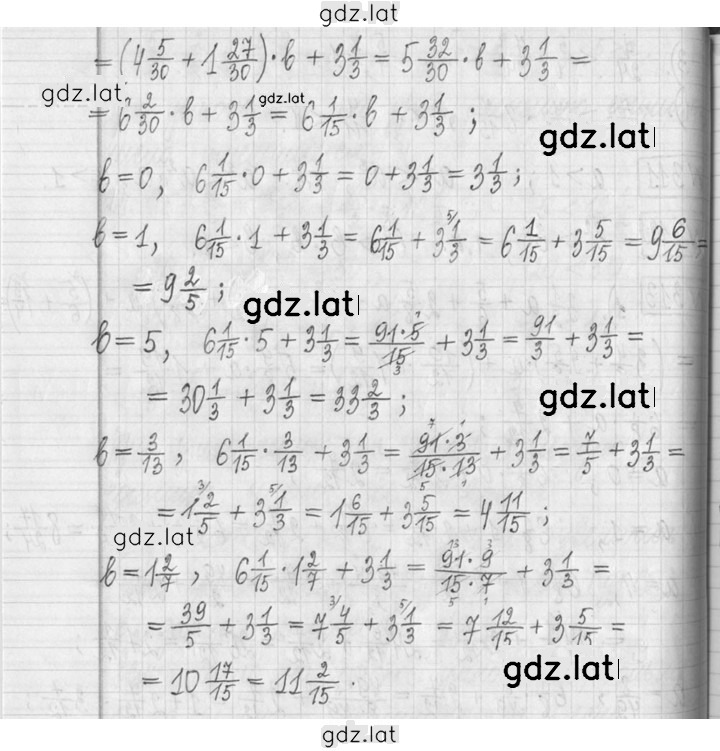 gdz.lat
= (4 5/30 + 1 27/30) · b + 3 1/3 = 5 32/30 · b + 3 1/3 =
gdz.lat
gdz.lat
= 6 2/30 · b + 3 1/3 = 6 1/15 · b + 3 1/3 ;
gdz.lat
b = 0, 6 1/15 · 0 + 3 1/3 = 0 + 3 1/3 = 3 1/3 ;
b = 1, 6 1/15 · 1 + 3 1/3 = 6 1/15 + 3 5/ 1/3 = 6 1/15 + 3 5/15 = 9 6/15 =
= 9 2/5 ;
gdz.lat
b = 5, 6 1/15 · 5 + 3 1/3 = 91 · 5/15 + 3 1/3 = 91/3 + 3 1/3 =
= 30 1/3 + 3 1/3 = 33 2/3 ;
gdz.lat
b = 3/13 , 6 1/15 · 3/13 + 3 1/3 = 91 · 3/15 · 13 + 3 1/3 = 7/5 + 3 1/3 =
= 1 3/ 2/5 + 3 5/ 1/3 = 1 6/15 + 3 5/15 = 4 11/15 ;
gdz.lat
b = 1 2/7 , 6 1/15 · 1 2/7 + 3 1/3 = 91 · 9/15 · 7 + 3 1/3 =
= 39/5 + 3 1/3 = 7 3/ 4/5 + 3 5/ 1/3 = 7 12/15 + 3 5/15 =
= 10 17/15 = 11 2/15 .
gdz.lat
gdz.lat